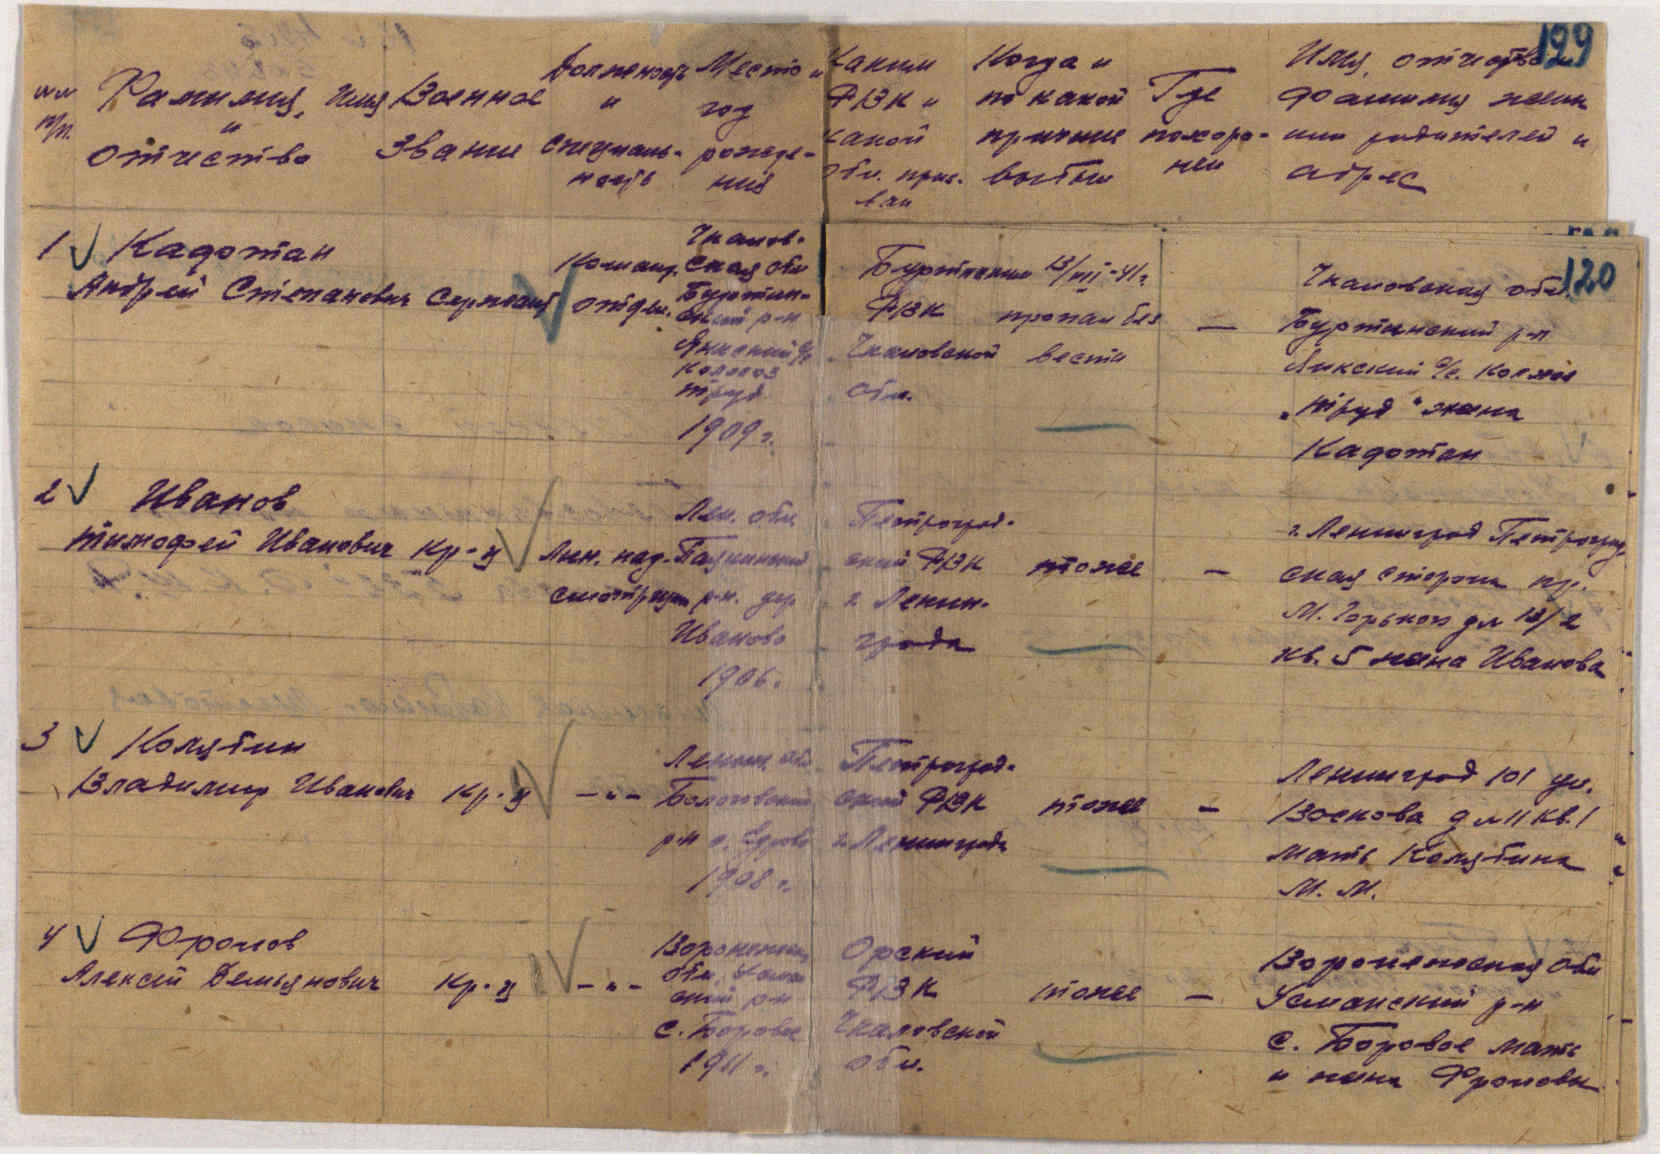 129
№№ п/п.
Фамилия, Имя и отчество
Военное звание
Должность и специальность
Место и год рождения
Каким РВК и какой обл. призван
Когда и по какой причине выбыл
Где похоронен
Имя, отчество фамилия жены или родителей и адрес
120
1 Кадотан
Андрей Степанович
Сержант
Команд. отдел.
Чкалов-
ская обл
Буртин-
ский р-н
Якский с/с
колхоз
труд
1909 г.
Буртинский
РВК
Чкаловской
обл.
13/VIII-41г.
пропал без
вести
—
Чкаловская обл.
Буртинский р-н
Якский с/с. колхоз
„труд“ жена
Кадотан
2 Иванов
Тимофей Иванович
Кр-ц
Лин. над-
смотрщик
Лен. обл.
р-н. дер
Иваново
1906 г.
Петроград-
ский РВК
г. Ленин-
града
тоже
—
г. Ленинград Петроград
ская сторона пр.
М. Горького д № 13/2
кв. 5 жена Иванова
3 Колятин
Владимир Иванович
Кр-ц
—"—
Ленин. обл
Бологовский
р-н с. Едрово
1908 г.
Петроград-
ский РВК
г. Ленинграда
тоже
—
Ленинград 101 ул.
Воскова д № 11 кв. 1
мать Колятина
М. М.
4 Фролов
Алексей Демьянович
Кр-ц
—"—
Воронежск
обл. Усман
ский р-н
с. Боровое
1911 г.
Орский
РВК
Чкаловской
обл.
тоже
—
Воронежская обл
Усманский р-н
с. Боровое мать
и жена Фроловы